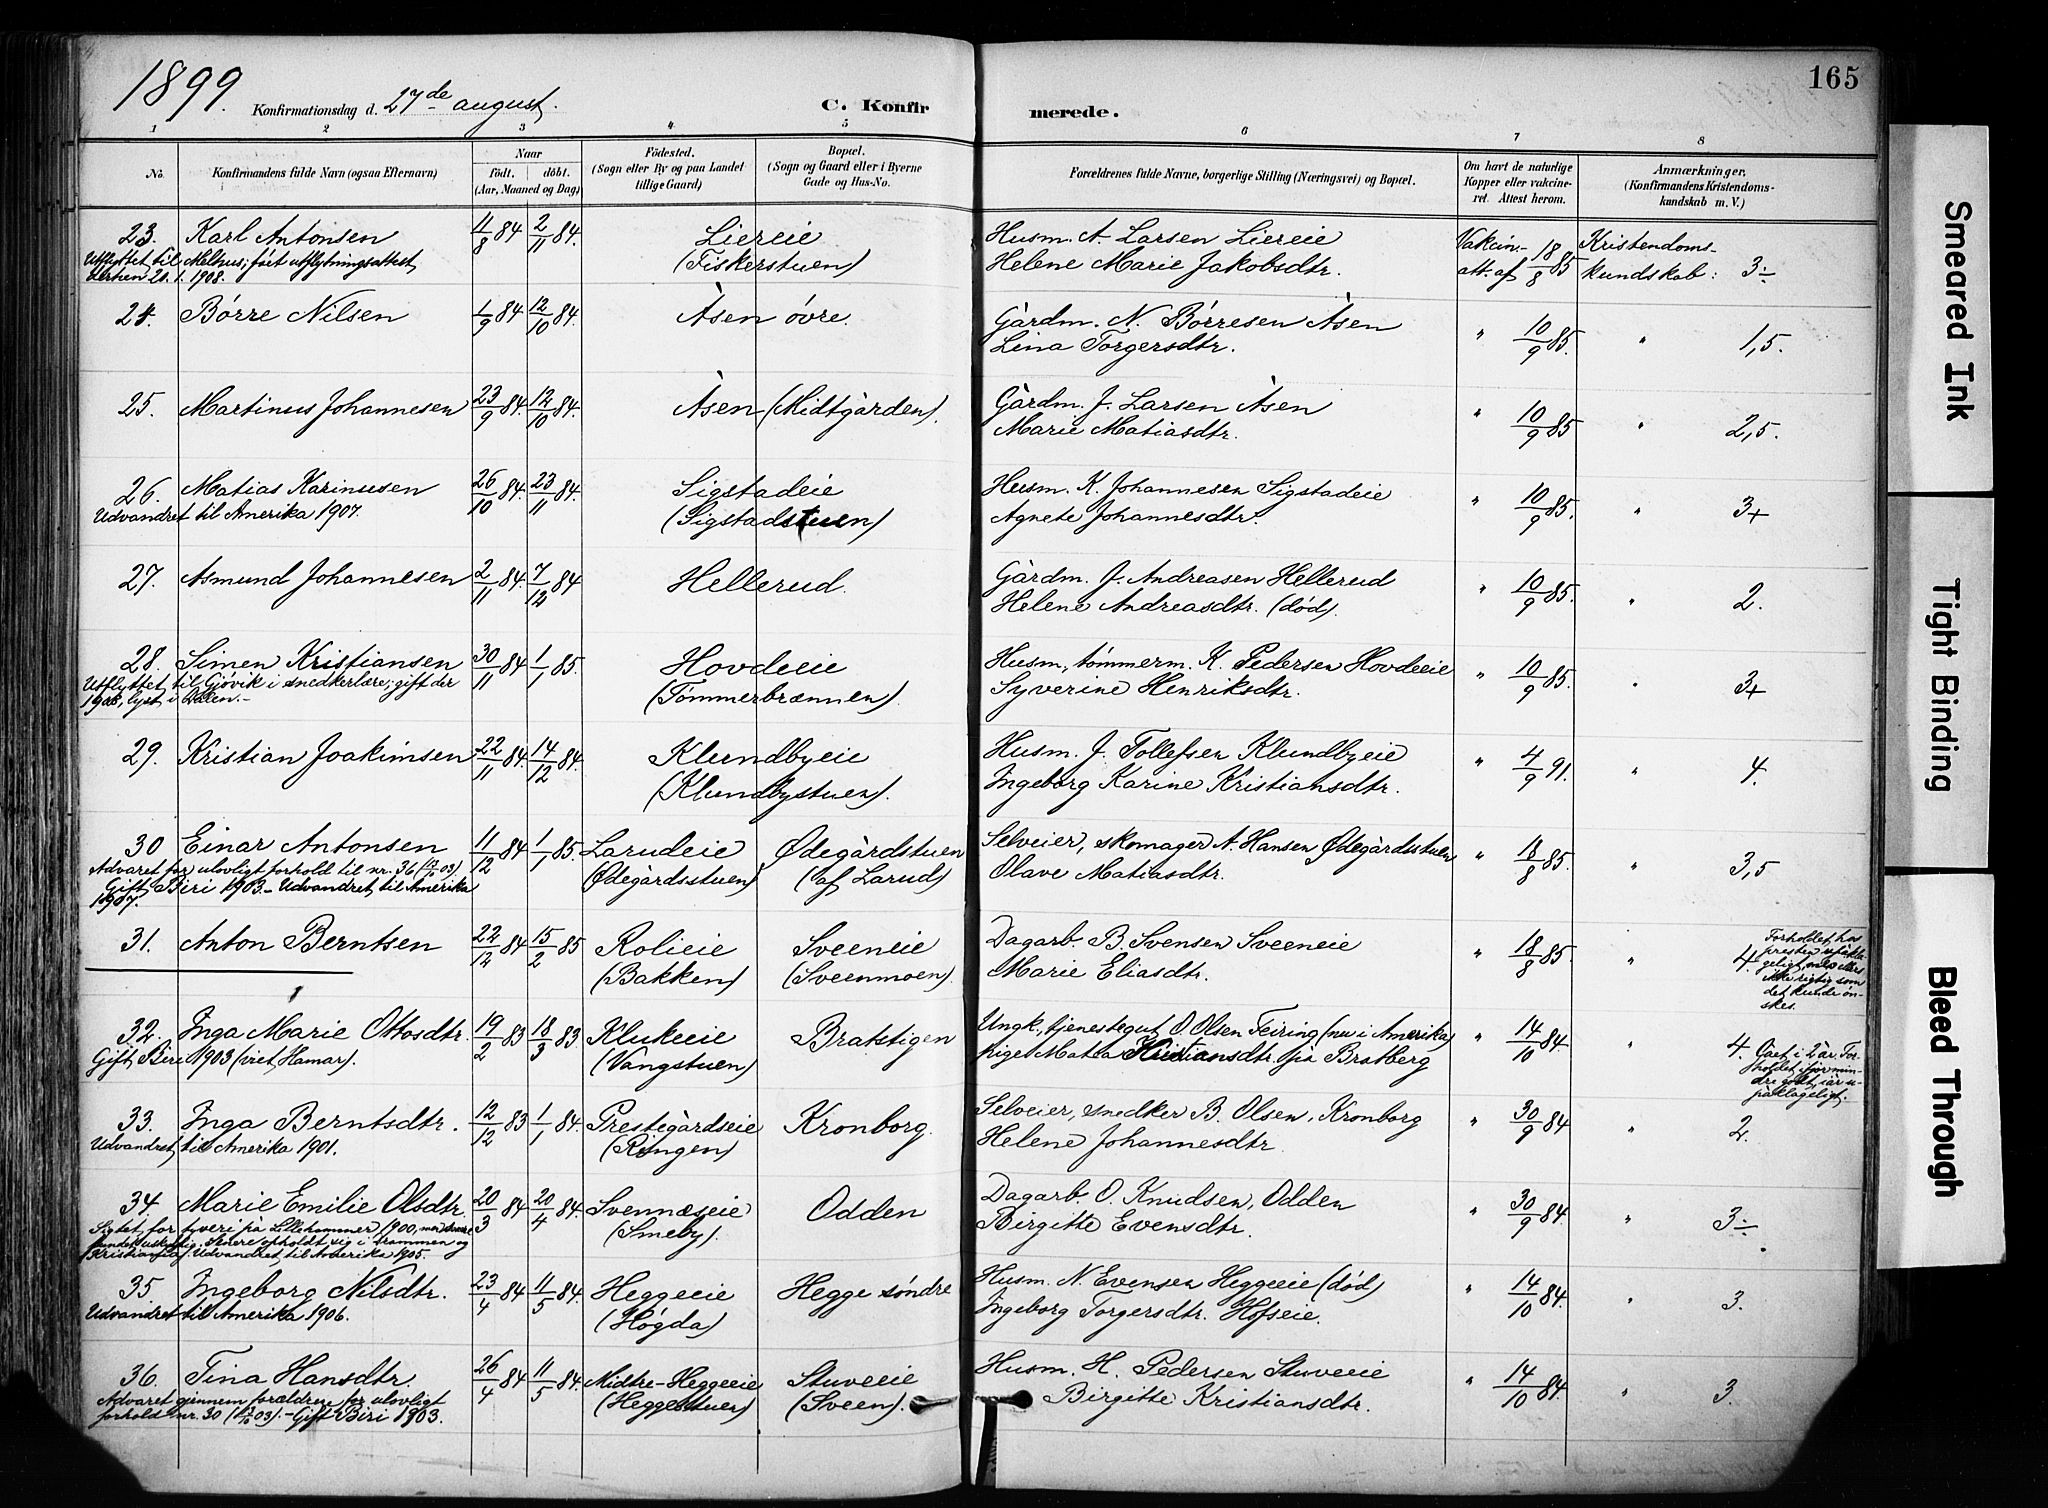 1899.
Konfirmationsdag d. 27de august.
C. Konfirmerede.
165
1 2 3 4 5 6 7 8
No.
Konfirmandens fulde Navn (ogsaa Efternavn)
Naar
født. døbt.
(Aar, Maaned og Dag)
Fødested.
(Sogn eller By og paa Landet
tillige Gaard)
Bopæl.
(Sogn og Gaard eller i Byerne
Gade og Hus-No.
Forældrenes fulde Navne, borgerlige Stilling (Næringsvei) og Bopæl.
Om havt de naturlige
Kopper eller vakcine-
ret. Attest herom.
Anmærkninger,
(Konfirmandens Kristendoms-
kundskab m. V.)
23. Karl Antonsen 11/8 84 2/11 84. Liereie
(Fiskerstuen)
Husm. A. Larsen Liereie
Helene Marie Jakobsdtr.
Vakcin.-
att. af 18/8 85
Kristendoms-
kundskab: 3÷
Utflyttet til Melhus; ført utflytningsattest
1908.
24. Børre Nilsen 1/9 84 12/10 84. Åsen øvre.
Gårdm. N. Børresen Åsen
Lina Torgersdtr.
" 10/9 85. " 1,5.
25. Martinus Johannesen 23/9 84. 12/10 84. Åsen (Midtgården).
Gårdm. J. Larsen Åsen
Marie Matiasdtr.
" 10/9 85 " 2,5.
26. Matias Karinusen 26/10 84. 23/11 84. Sigstadeie
(Sigstadstuen)
Husm. K. Johannesen Sigstadeie
Agnete Johannesdtr.
" 10/9 85. " 3+
Udvandret til Amerika 1907.
27. Asmund Johannesen 2/11 84. 7/12 84 Hellerud.
Gårdm. J. Andreasen Hellerud
Helene Andreasdtr. (død).
" 10/9 85. " 2.
28. Simen Kristiansen 30/11 84 1/1 85. Hovdeeie
(Tømmerbrænnen).
Husm, tømmerm. K. Pedersen Hovdeeie
Syverine Henriksdtr.
" 10/9 85. " 3+
Utflyttet til Gjøvik i snedkerlære; gift der
lyst i
29. Kristian Joakimsen 22/11 84. 14/12 84. Klundbyeie
(Klundbystuen).
Husm. J. Tollefsen Klundbyeie
Ingeborg Karine Kristiansdtr.
" 4/9 91. " 4.
30 Einar Antonsen 11/12 84 1/1 85. Larudeie
(Ødegårdsstuen)
Ødegårdstuen
(af Larud)
Selveier, skomager A. Hansen Ødegårdsstuen
Olave Matiasdtr.
" 18/8 85. " 3,5
Advaret for ulovligt forhold til nr. 36
Gift Biri 1903. – Udvandret til Amerika
1907.
31. Anton Berntsen 22/12 84 15/2 85 Rolieie
(Bakken)
Sveeneie
(Sveenmoen)
Dagarb. B. Svensen Sveeneie
Marie Eliasdtr.
" 18/8 85. " 4.
Forholdet hos
presten upåkla-
geligt, men ellers
ikke rigtig som
det kunde øn-
skes.
32. Inga Marie Ottosdtr. 19/2 83 18/3 83. Klukeeie
(Vangstuen)
Bratstigen
Ungk., tjenestegut O. Olsen Feiring (nu i Amerika)
pige Matea Kristiansdtr. på Bratberg
" 14/10 84. " 4.
Gået i 2 år. For-
holdet ifjor min-
dre godt, iår u-
påklageligt.
Gift Biri 1903 (viet Hamar).
33. Inga Berntsdtr. 12/12 83 1/1 84. Prestegårdseie
(Ringen)
Kronborg.
Selveier, snedker B. Olsen, Kronborg
Helene Johannesdtr
" 30/9 84 " 2.
Udvandret til Amerika 1901.
34. Marie Emilie Olsdtr. 20/3 84 20/4 84. Svennæseie
(Smeby).
Odden
Dagarb. O. Knudsen, Odden
Birgitte Evensdtr.
" 30/9 84. " 3÷
Sigtet for tyveri på Lillehammer 1900, men
Senere opholdt sig i Drammen og
Kristiania. Udvandret til Amerika 1905.
35 Ingeborg Nilsdtr. 23/4 84 11/5 84. Heggeeie
(Høgda)
Hegge søndre
Husm. N. Evensen Heggeeie (død)
Ingeborg Torgersdtr. Hofseie.
" 14/10 84. " 3.
Udvandret til Amerika 1906.
36. Tina Hansdtr. 26/4 84 11/5 84. Midtre-Heggeeie
(Heggestuen)
Stuveeie
(Sveen).
Husm. H. Pedersen Stuveeie
Birgitte Kristiansdtr.
" 14/10 84. " 3.
Advaret gjennem forældrene for ulovligt
forhold nr. 30 – Gift Biri 1903.
Smeared Ink
Tight Binding
Bleed Through